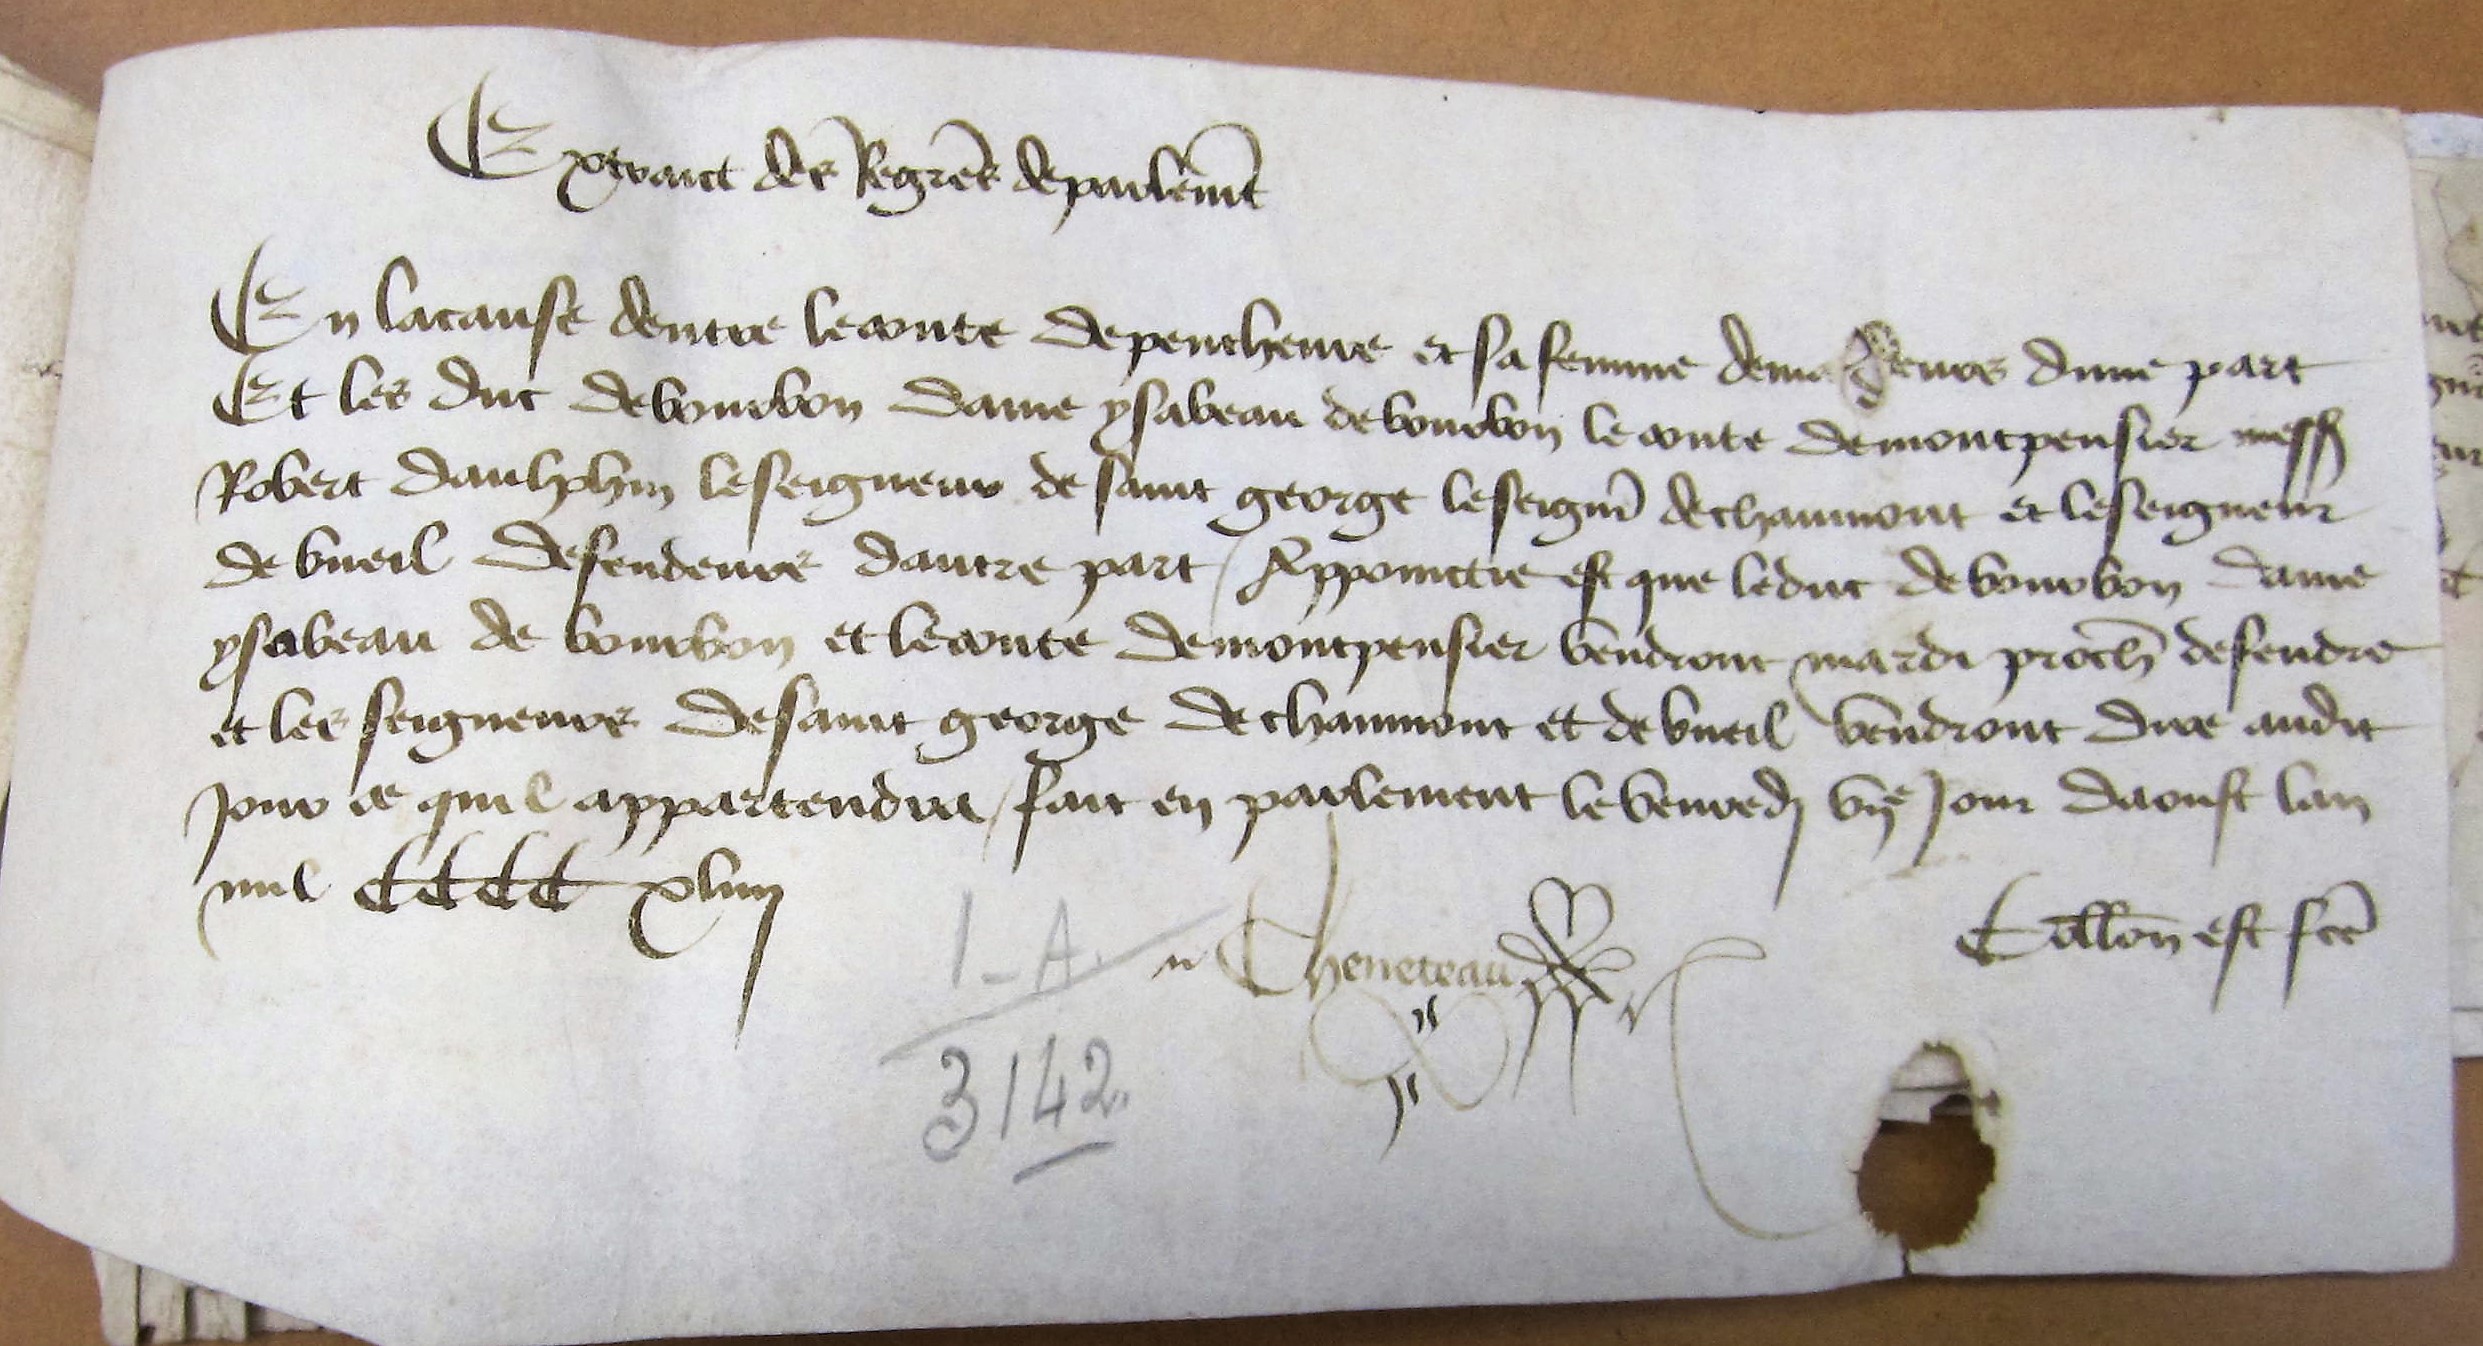 Extraict des Regrēs de parlemt
En la cause dentre le conte de penthevre et sa femme demandeurs dune part
Et les duc de bourbon dame ysabeau de bourbon le conte de montpensier mess
Robert daulphin le seigneur de saint george le seignr de chaumont et le seigneur
de bueil defendeurs dautre part / Appoinctie est que le duc de bourbon dame
ysabeau de bourbon et le conte de montpensier vendront mardi proch defendre
et les seigneurs de saint george de chaumont et de bueil vendront dire audit
jour ce quil appartendra / fait en parlement le venredj vije jour daoust lan
mil CCCC xliiij
Collon est fcē
Cheneteau
1-A.
3142.